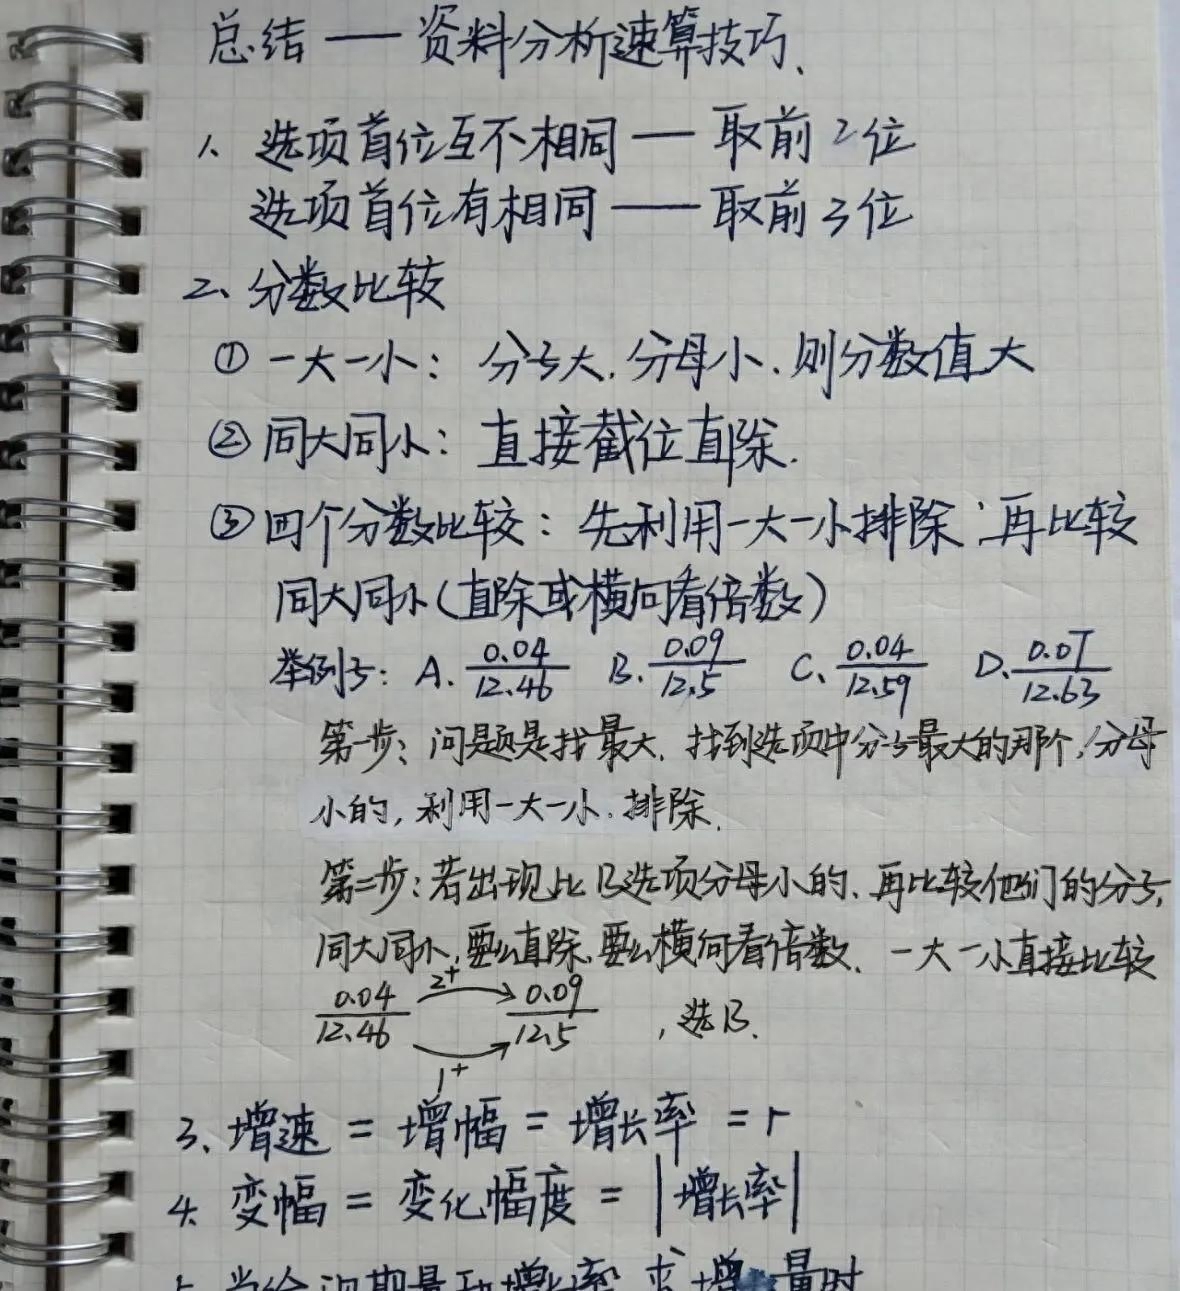 总结 — 资料分析速算技巧、
1、选项首位互不相同 — 取前2位
选项首位有相同 — 取前3位
2、分数比较
① 一大一小：分子大，分母小，则分数值大
② 同大同小：直接截位直除.
③ 四个分数比较：先利用一大一小排除，再比较
同大同小（直除或横向看倍数）
举例子：A. 0.04/12.46 B. 0.09/12.5 C、0.04/12.59 D、0.07/12.63
第一步：问题是找最大，找到选项中分子最大的那个，分母
小的，利用一大一小，排除.
第二步：若出现比B选项分母小的、再比较他们的分子，
同大同小，要么直除，要么横向看倍数、一大一小直接比较
0.04/12.46 2+ 1+ 0.09/12.5 ，选B.
3、增速 = 增幅 = 增长率 = r
4、变幅 = 变化幅度 = |增长率|
5、当给现期量和增长率，求增量时